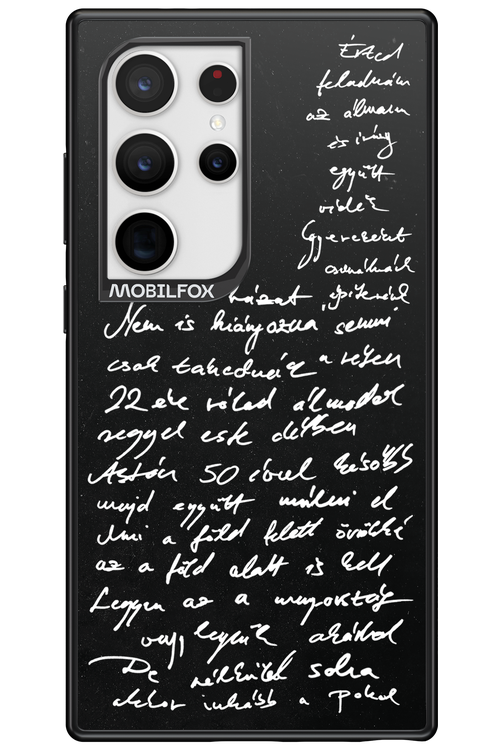 Érted
feladnám
az álmaim
és irány
együtt
vidék
Gyerekeket
csinálnánk
MOBILFOX
házat építenénk
Nem is hiányozna semmi
csak takednác a vélyen
22 éve rólad álmodok
reggel este délben
Aztán 50 évvel később
majd együtt múlni el
Ami a föld felett örökké
az a föld alatt is kell
Legyen az a mennyország
vagy legyünk akárhol
De nélküled soha
akkor inkább a pokol